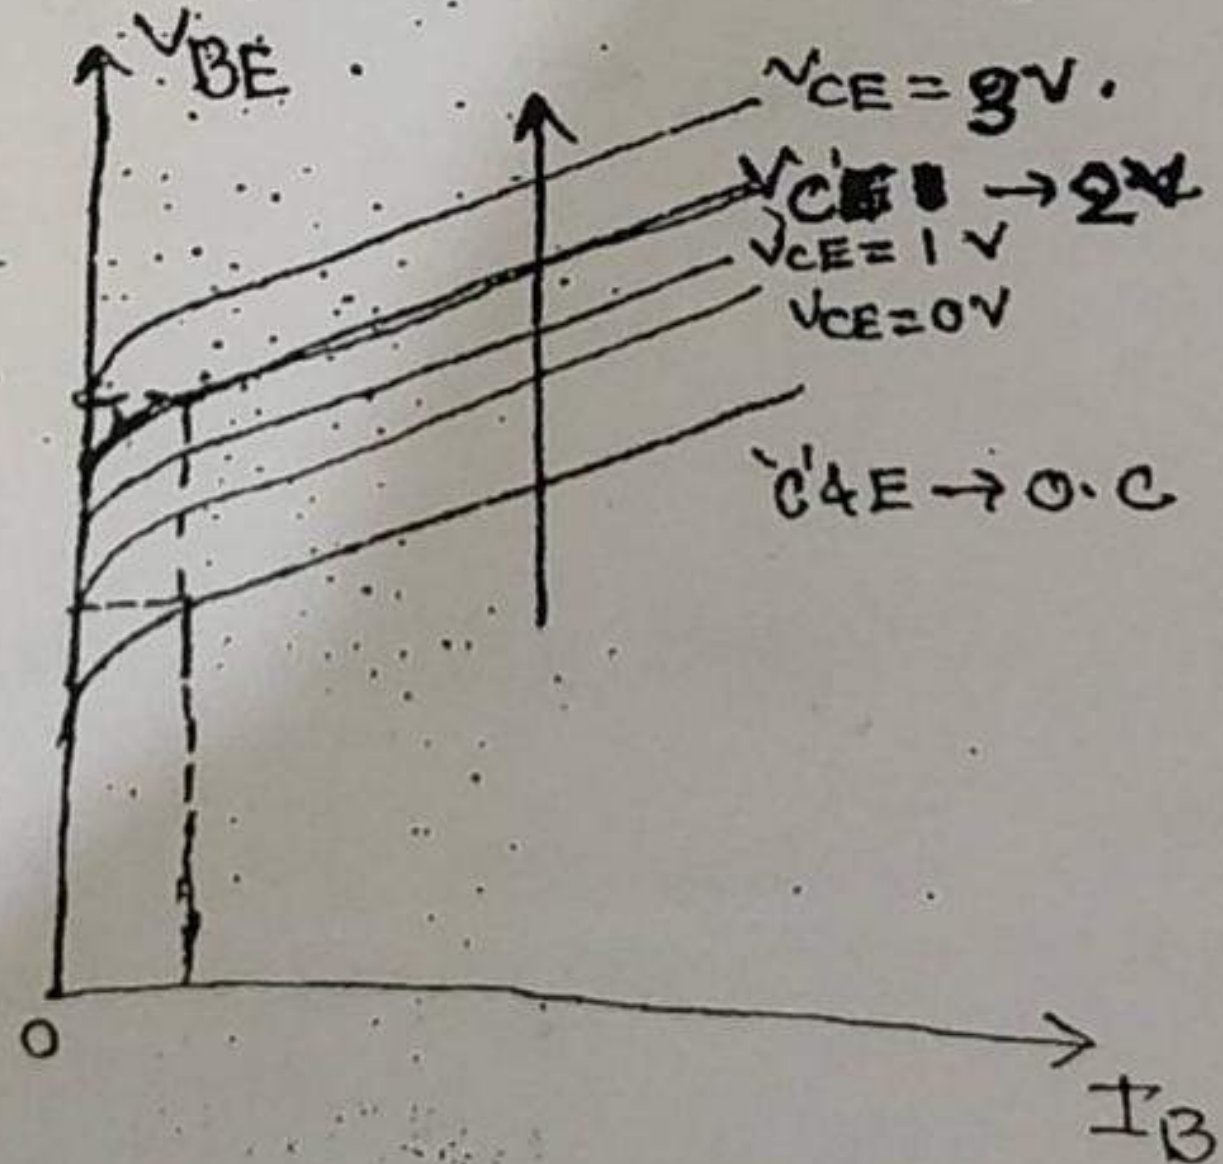 V_BE
V_CE = 3V.
V_C → 2V
V_CE = 1V
V_CE = 0V
'C' & E → O.C
O
I_B